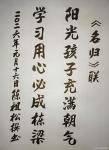 《名归》联
阳光孩子充满朝气
学习用心必成栋梁
二〇二六年元月十六日陈祖松撰书